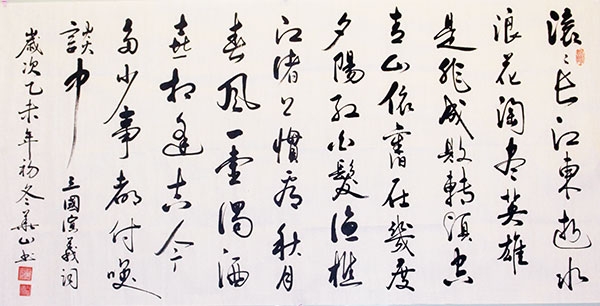 滚〻长江東逝水
浪花淘尽英雄
是非成败轉頭空
青山依舊在幾度
夕陽红白髮漁樵
江渚上慣看秋月
春風一壶濁酒
喜相逢古今
多少事都付笑
談中
三國演義詞
歲次乙未年初冬華山书